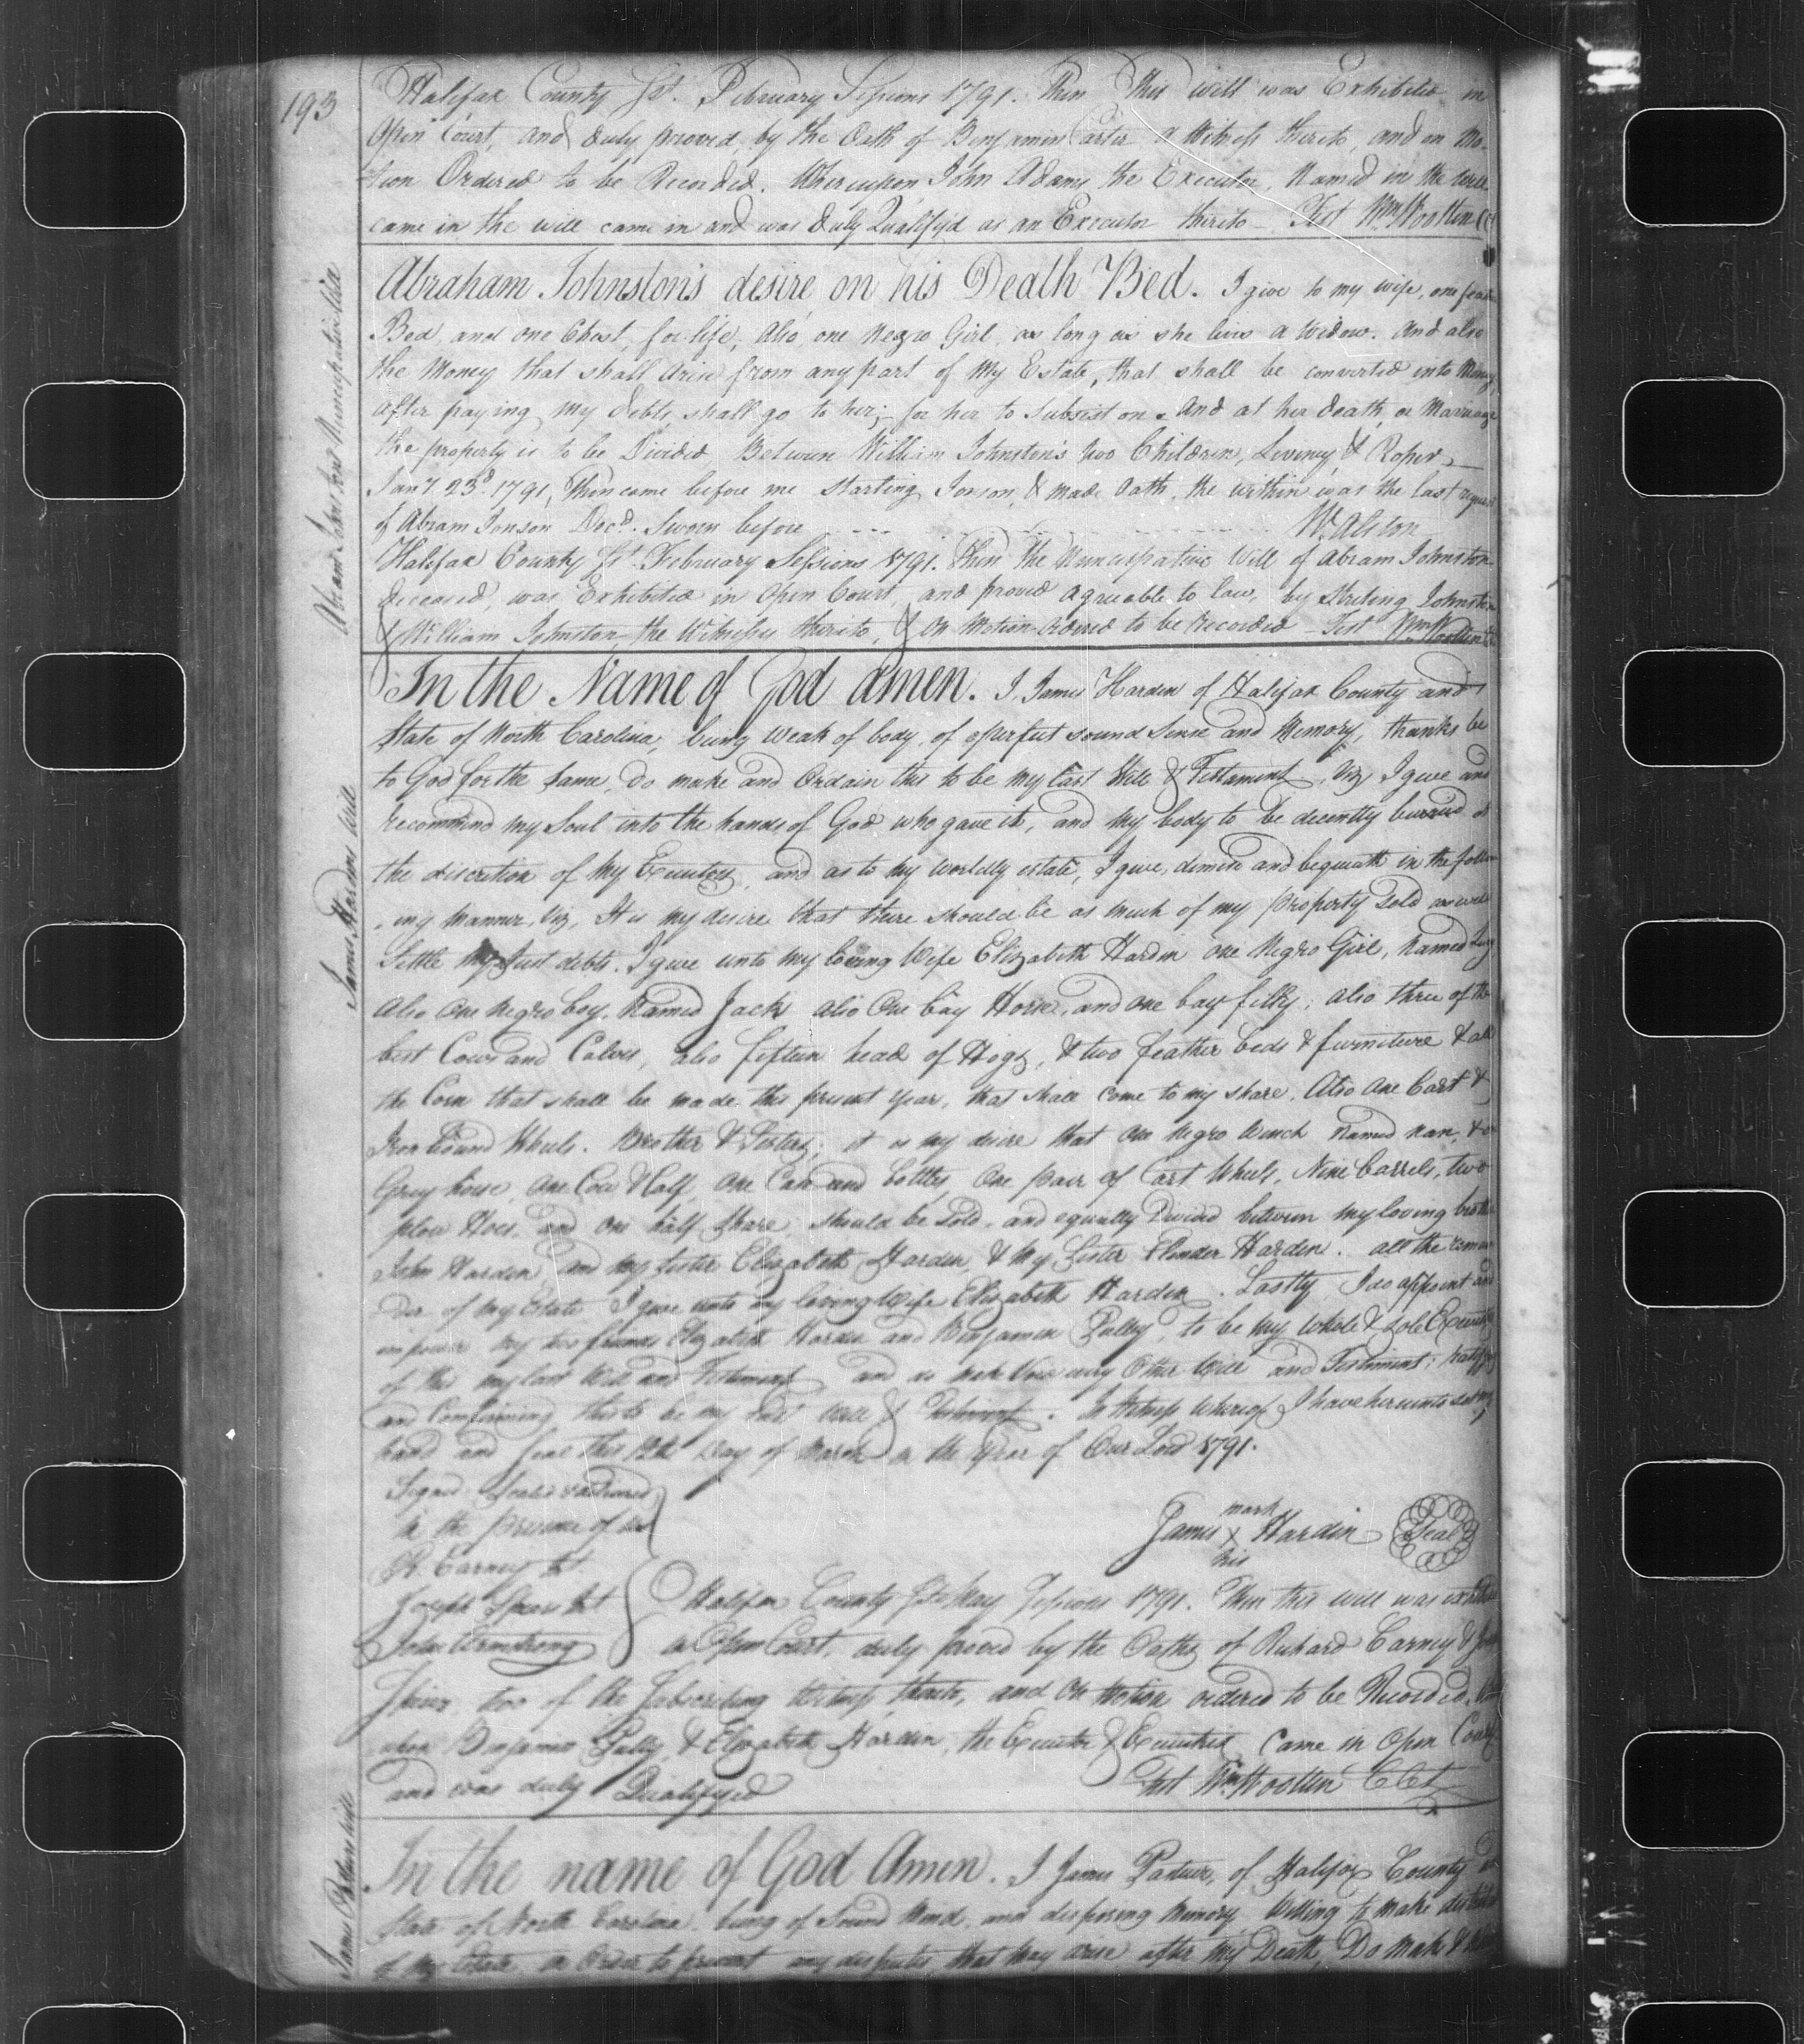 193
Halifax County Sst. February Sessions 1791. Then This will was Exhibited in
Open Court, and duly proved, by the Oath of Benjamin Carter a Witness thereto, and on Mo-
-tion Ordered to be Recorded. Whereupon John Adams the Executor, Named in the will
came in the will came in and was duly Qualifyd as an Executor thereto - Test Wm Wootten CC
Abram Johnstons Nuncupative Will
Abraham Johnston's desire on his Death Bed. I give to my wife, one feather
Bed, and one Chest, for life, Also one Negro Girl, as long as she lives a Widow. And also
the Money that shall Arise from any part of My Estate, that shall be converted into Money
after paying my debts, shall go to her; for her to Subsist on. And at her death, or Marriage
the property is to be Divided Between William Johnston's two Children, & Roper
Jany 23d 1791, Then came before me Starling Jonson, & made Oath, the within was the last request
of Abram Jonson Decd. Sworn before W. Alston
Halifax County Sst. February Sessions 1791. Then the Nuncupative Will of Abram Johnston
deceased, was Exhibited in Open Court, and proved Agreeable to law, by Sterling Johnston
& William Johnston, the Witnesses thereto, & On Motion Ordered to be recorded - Test Wm Wootten
James Hardins Will
In the Name of God Amen. I, James Harden of Halifax County and
State of North Carolina, being weak of body, of perfect sound Sense and Memory, thanks be
to God for the same, do make and Ordain this to be my last Will & Testament, Viz, I give and
recommend my Soul into the hands of God who gave it, and my body to be decently buried at
the discretion of My Executors, and as to my worldly estate, I give, demise and bequeath in the follow
-ing Manner, Viz, It is my desire that there should be as much of my property Sold as will
Settle my Just debts. I give unto my loving Wife Elizabeth Hardin one Negro Girl, Named
Also One Negro boy, Named Jack also One bay Horse, and one bay filly; also three of the
best Cows and Calves, also fifteen head of Hogs, & two feather beds & furniture & all
the Corn that shall be made this present Year, that shall come to my share, Also One Cart &
Iron bound Wheels. Brother & Sisters; it is my desire that one Negro Wench Named Nan, &
Gray horse, One Cow & Calf, One Case and bottles, One pair of Cart Wheels, Nine barrels, two
plow Hoes, and one half share, should be Sold, and equally Divided between my loving brother
John Harden, and my Sister Elizabeth Harden, & My Sister Elender Harden. all the remain
der of my Estate I give unto my loving Wife Elizabeth Harden. Lastly, I do appoint and
impower my two friends Elizabeth Harden and Benjamin Pulley, to be my Whole & Sole Executors
of this my last Will and Testament, and do make Void every Other Will and Testiment; ratifying
and Confirming this to be my last Will & Testiment. In Witness Whereof I have hereunto set my
hand and Seal this day of March in the Year of Our Lord 1791.
Signed Sealed
in the presence of us
R. Carney Jt
Joseph Spiers Jt
John Armstrong
mark
James X Hardin Seal
his
Halifax County Sst May Sessions 1791. Then this will was exhibited
in Open Court, duly proved by the Oaths of Richard Carney &
Spiers, two of the Subscribing Witness thereto, and On Motion ordered to be Recorded,
upon Benjamin Pully & Elizabeth Harden, the Executor & Executrix came in Open Court
and was duly Qualifyed Test Wm Wootten Clk
James will
In the name of God Amen. I James of Halifax County
State of North Carolina, being of Sound Mind, and disposing Memory Willing to make
of my Estate, in Order to prevent any disputes that May Arise after My Death, Do Make &